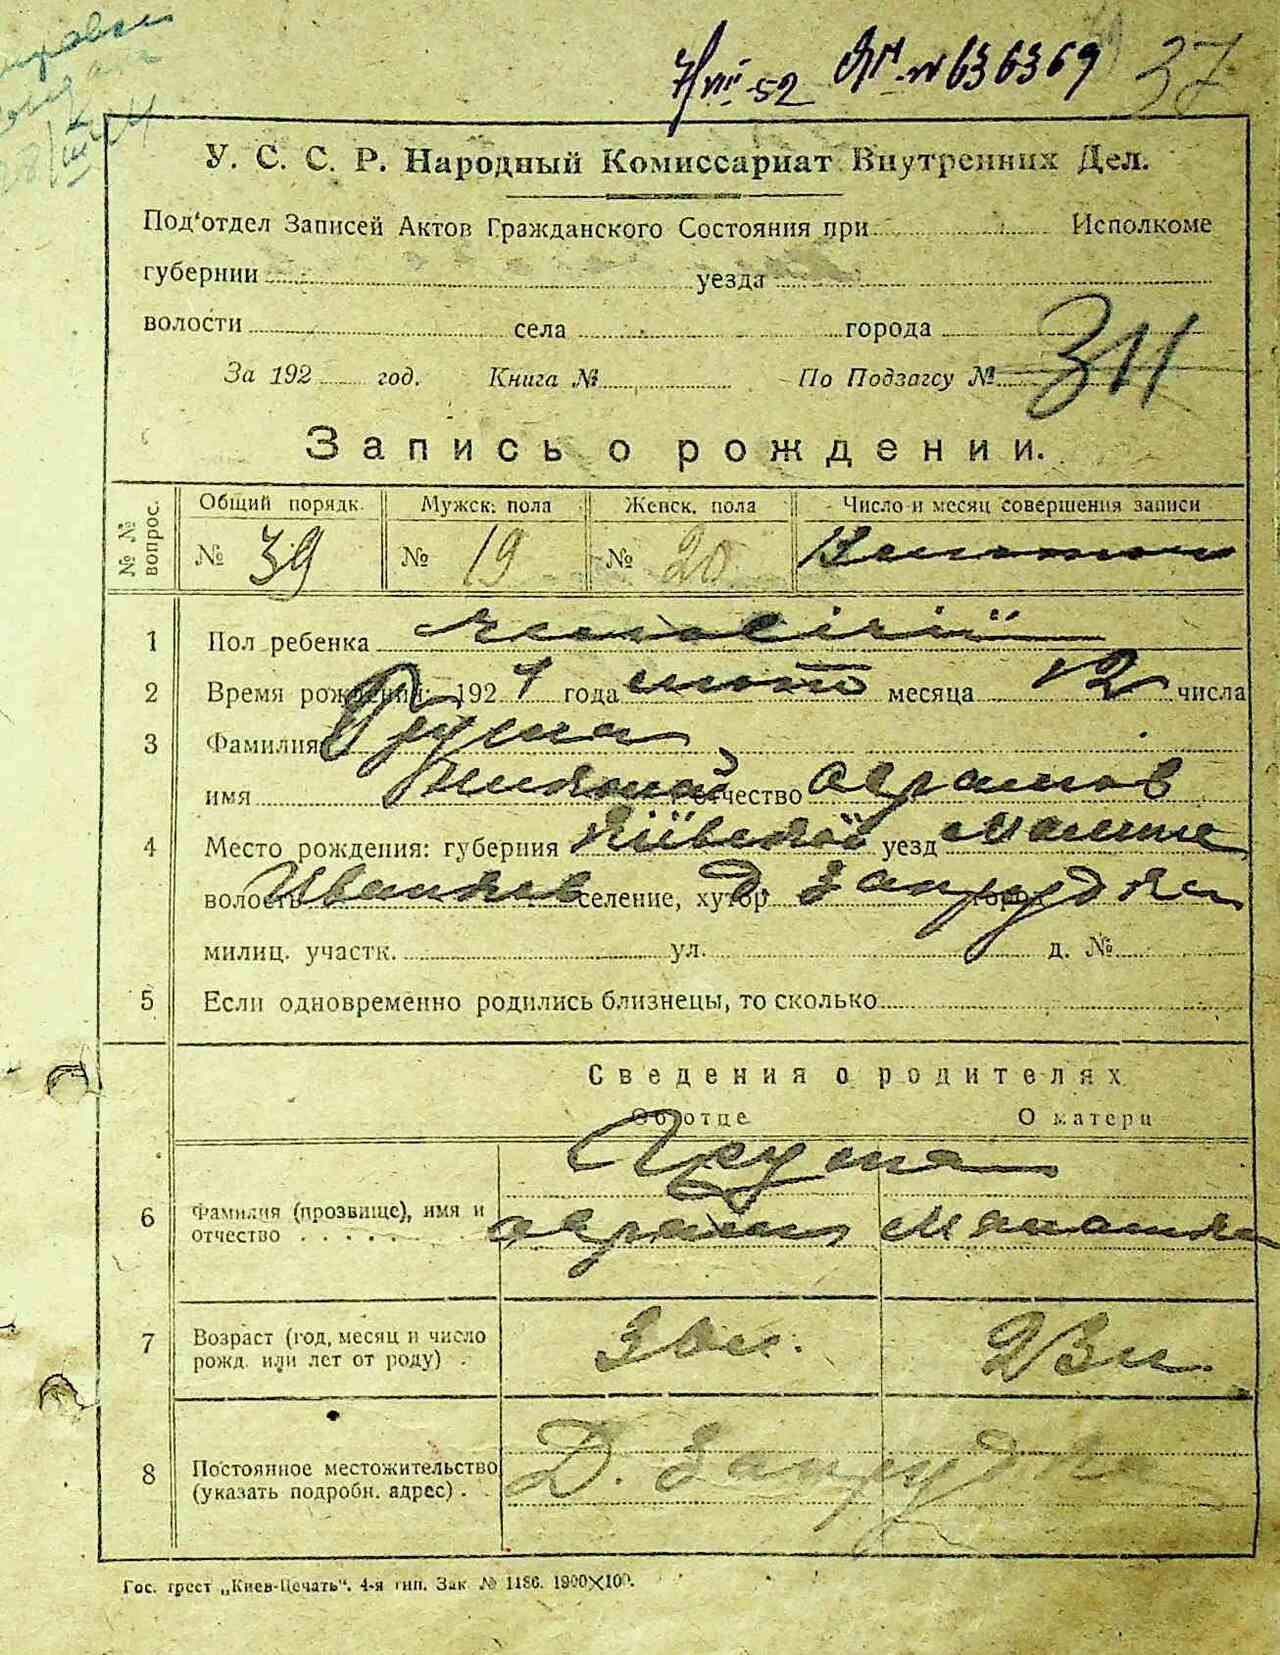 7/VIII-52 № 636369 37
28/III
У. С. С. Р. Народный Комиссариат Внутренних Дел.
Под'отдел Записей Актов Гражданского Состояния при Исполкоме
губернии уезда
волости села города
За 192 год. Книга № По Подзагсу № 311
Запись о рождении.
№ № вопрос.
Общий порядк. Мужск. пола Женск. пола Число и месяц совершения записи
№ 39 № 19 № 20
1 Пол ребенка
2 Время рождения: 192 года месяца 12 числа
3 Фамилия Груша
имя Николай отчество Аврамов
4 Место рождения: губерния Київской уезд
волость Иванков селение, хутор Д Запрудка город
милиц. участк. ул. д. №
5 Если одновременно родились близнецы, то сколько
Сведения о родителях
Об отце О матери
Груша
6 Фамилия (прозвище), имя и
отчество Аврам
7 Возраст (год, месяц и число
рожд. или лет от роду) . 30 л. 23 л.
8 Постоянное местожительство
(указать подробн. адрес) . Д. Запрудка
Гос. трест „Киев-Печать“. 4-я тип. Зак № 1186. 1900×100.